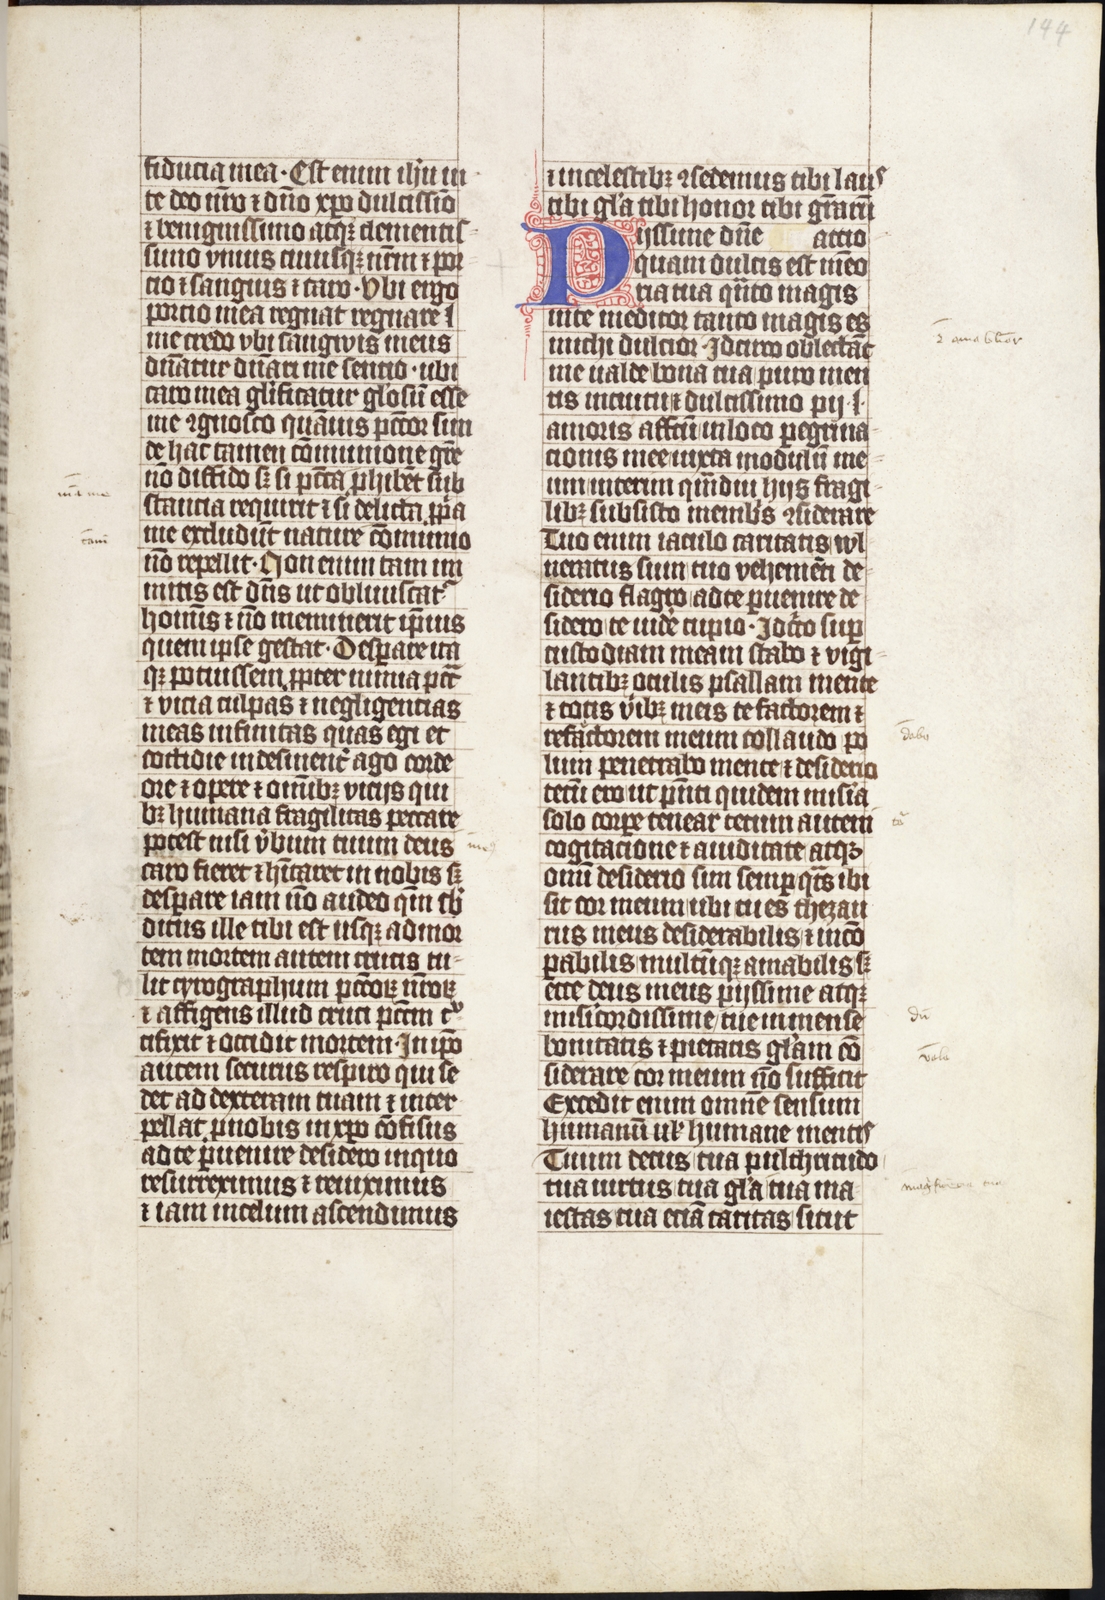 144
fiducia mea · Est enim ih̄u in
te deo nr̄o ⁊ dn̄o xp̄o dulcissīo
⁊ benignissimo atqꝫ clementis
simo vnius cuiusqꝫ nr̄m ⁊ por
cio ⁊ sanguis ⁊ caro · Vbi ergo
porcio mea regnat regnare ·
me credo vbi sangwis meus
dn̄atur dn̄ari me sencio · ubi
caro mea glīficatur glōsū esse
me ꝯgnosco quāuis pcc̄or sim
de hac tamen cōmunione gr̄e
nō diffido sꝫ si pcc̄a ꝓhibēt sub
stancia requirit ⁊ si delicta ꝓp̄a
me excludūt nature cōmunio
nō repellit · Non enim tam im
mitis est dn̄s ut obliuiscat᷑
homīs ⁊ nō meminerit ip̄ius
quem ipse gestat · Desperare ita
qꝫ potuissem ꝓpter nimia pcc̄
⁊ vicia culpas ⁊ negligencias
meas infinitas quas egi et
cottidie indesinent᷑ ago corde
ore ⁊ opere ⁊ om̄ibꝫ vicijs qui
bꝫ humana fragilitas peccare
potest nisi v̄bum tuum deus
caro fieret ⁊ hītaret in nobis sꝫ
desperare iam nō audeo qm̄ sb̄
ditus ille tibi est usqꝫ ad mor
tem mortem autem crucis tu-
lit cyrographum pcc̄oꝝ nr̄oꝝ
⁊ affigens illud cruci pcc̄m cͮ
cifixit ⁊ occidit mortem In ip̄o
autem securus respiro qui se
det ad dexteram tuam ⁊ inter
pellat ꝓ nobis in xp̄o cōfisus
ad te ꝑuenire desidero in quo
resurreximus ⁊ reuiximus
⁊ iam in celum ascendimus
⁊ in celestibꝫ ꝯsedemus tibi laus
tibi glā tibi honor tibi grācū
Pijssime dn̄e actio
quam dulcis est mēo
ria tua qn̄to magis
in te meditor tanto magis es
michi dulcior Idcirco oblectāt
me ualde bona tua puro men
tis intuitu ⁊ dulcissimo pij ·
amoris affc̄u in loco ꝑegrīna
cionis mee iuxta modulū me
um interim qm̄diu hijs fragi
libꝫ subsisto membr̄s ꝯsiderare
Tuo enim iaculo caritatis wl
neratus sum tuo vehemēti de
siderio flagro ad te ꝑuenire de
sidero te uidē cupio · Idc̄co suꝑ
custodiam meam stabo ⁊ vigi
lantibꝫ oculis psallam mente
⁊ totis v̄ibꝫ meis te factorem ⁊
refactorem meum collaudo po
lum penetrabo mente ⁊ desiderio
tecū ero ut pn̄ti quidem miśia
solo corꝑe tenear tecum autem
cogitacione ⁊ auiditate atqꝫ
om̄i desiderio sim semꝑ qt̄s ibi
sit cor meum ubi tu es thezau
rus meus desiderabilis ⁊ incō
parabilis multūqꝫ amabilis sꝫ
ecce deus meus pijssime atqꝫ
misīcordissime tue inmense
bonitatis ⁊ pietatis glām cō
siderare cor meum nō sufficit
Excedit enim omne sensum
humanū ul̄ humane mentis
Tuum decus tua pulchritudo
tua uirtus tua glā tua ma
iestas tua eciā caritas sicut
⁊ amabilior
dabo
dū